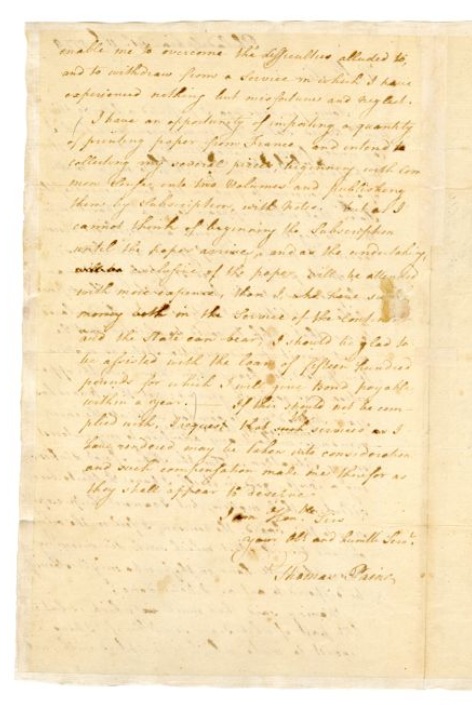 enable me to overcome the difficulties alluded to,
and to withdraw from a Service in which I have
experienced nothing but misfortune and neglect.
I have an opportunity of importing a quantity
of printing paper from France, and intend
collecting my several pieces, beginning with Com
mon Sense, into two Volumes and publishing
them by Subscription, with notes. but as I
cannot think of beginning the Subscription
until the paper arrive, and as the undertaking,
exclusive of the paper, will be attended
with more expense, than I who have
money both in the Service of the
and the State can bear, I should be glad to
be assisted with the loan of fifteen hundred
pounds for which I will give Bond payable
within a year. If this should not be com-
plied with, I request that services as I
have rendered may be taken into consideration
and such compensation made me therefor as
they shall appear to deserve
I am Honble Sirs
your Obt and Humble Servt
Thomas Paine